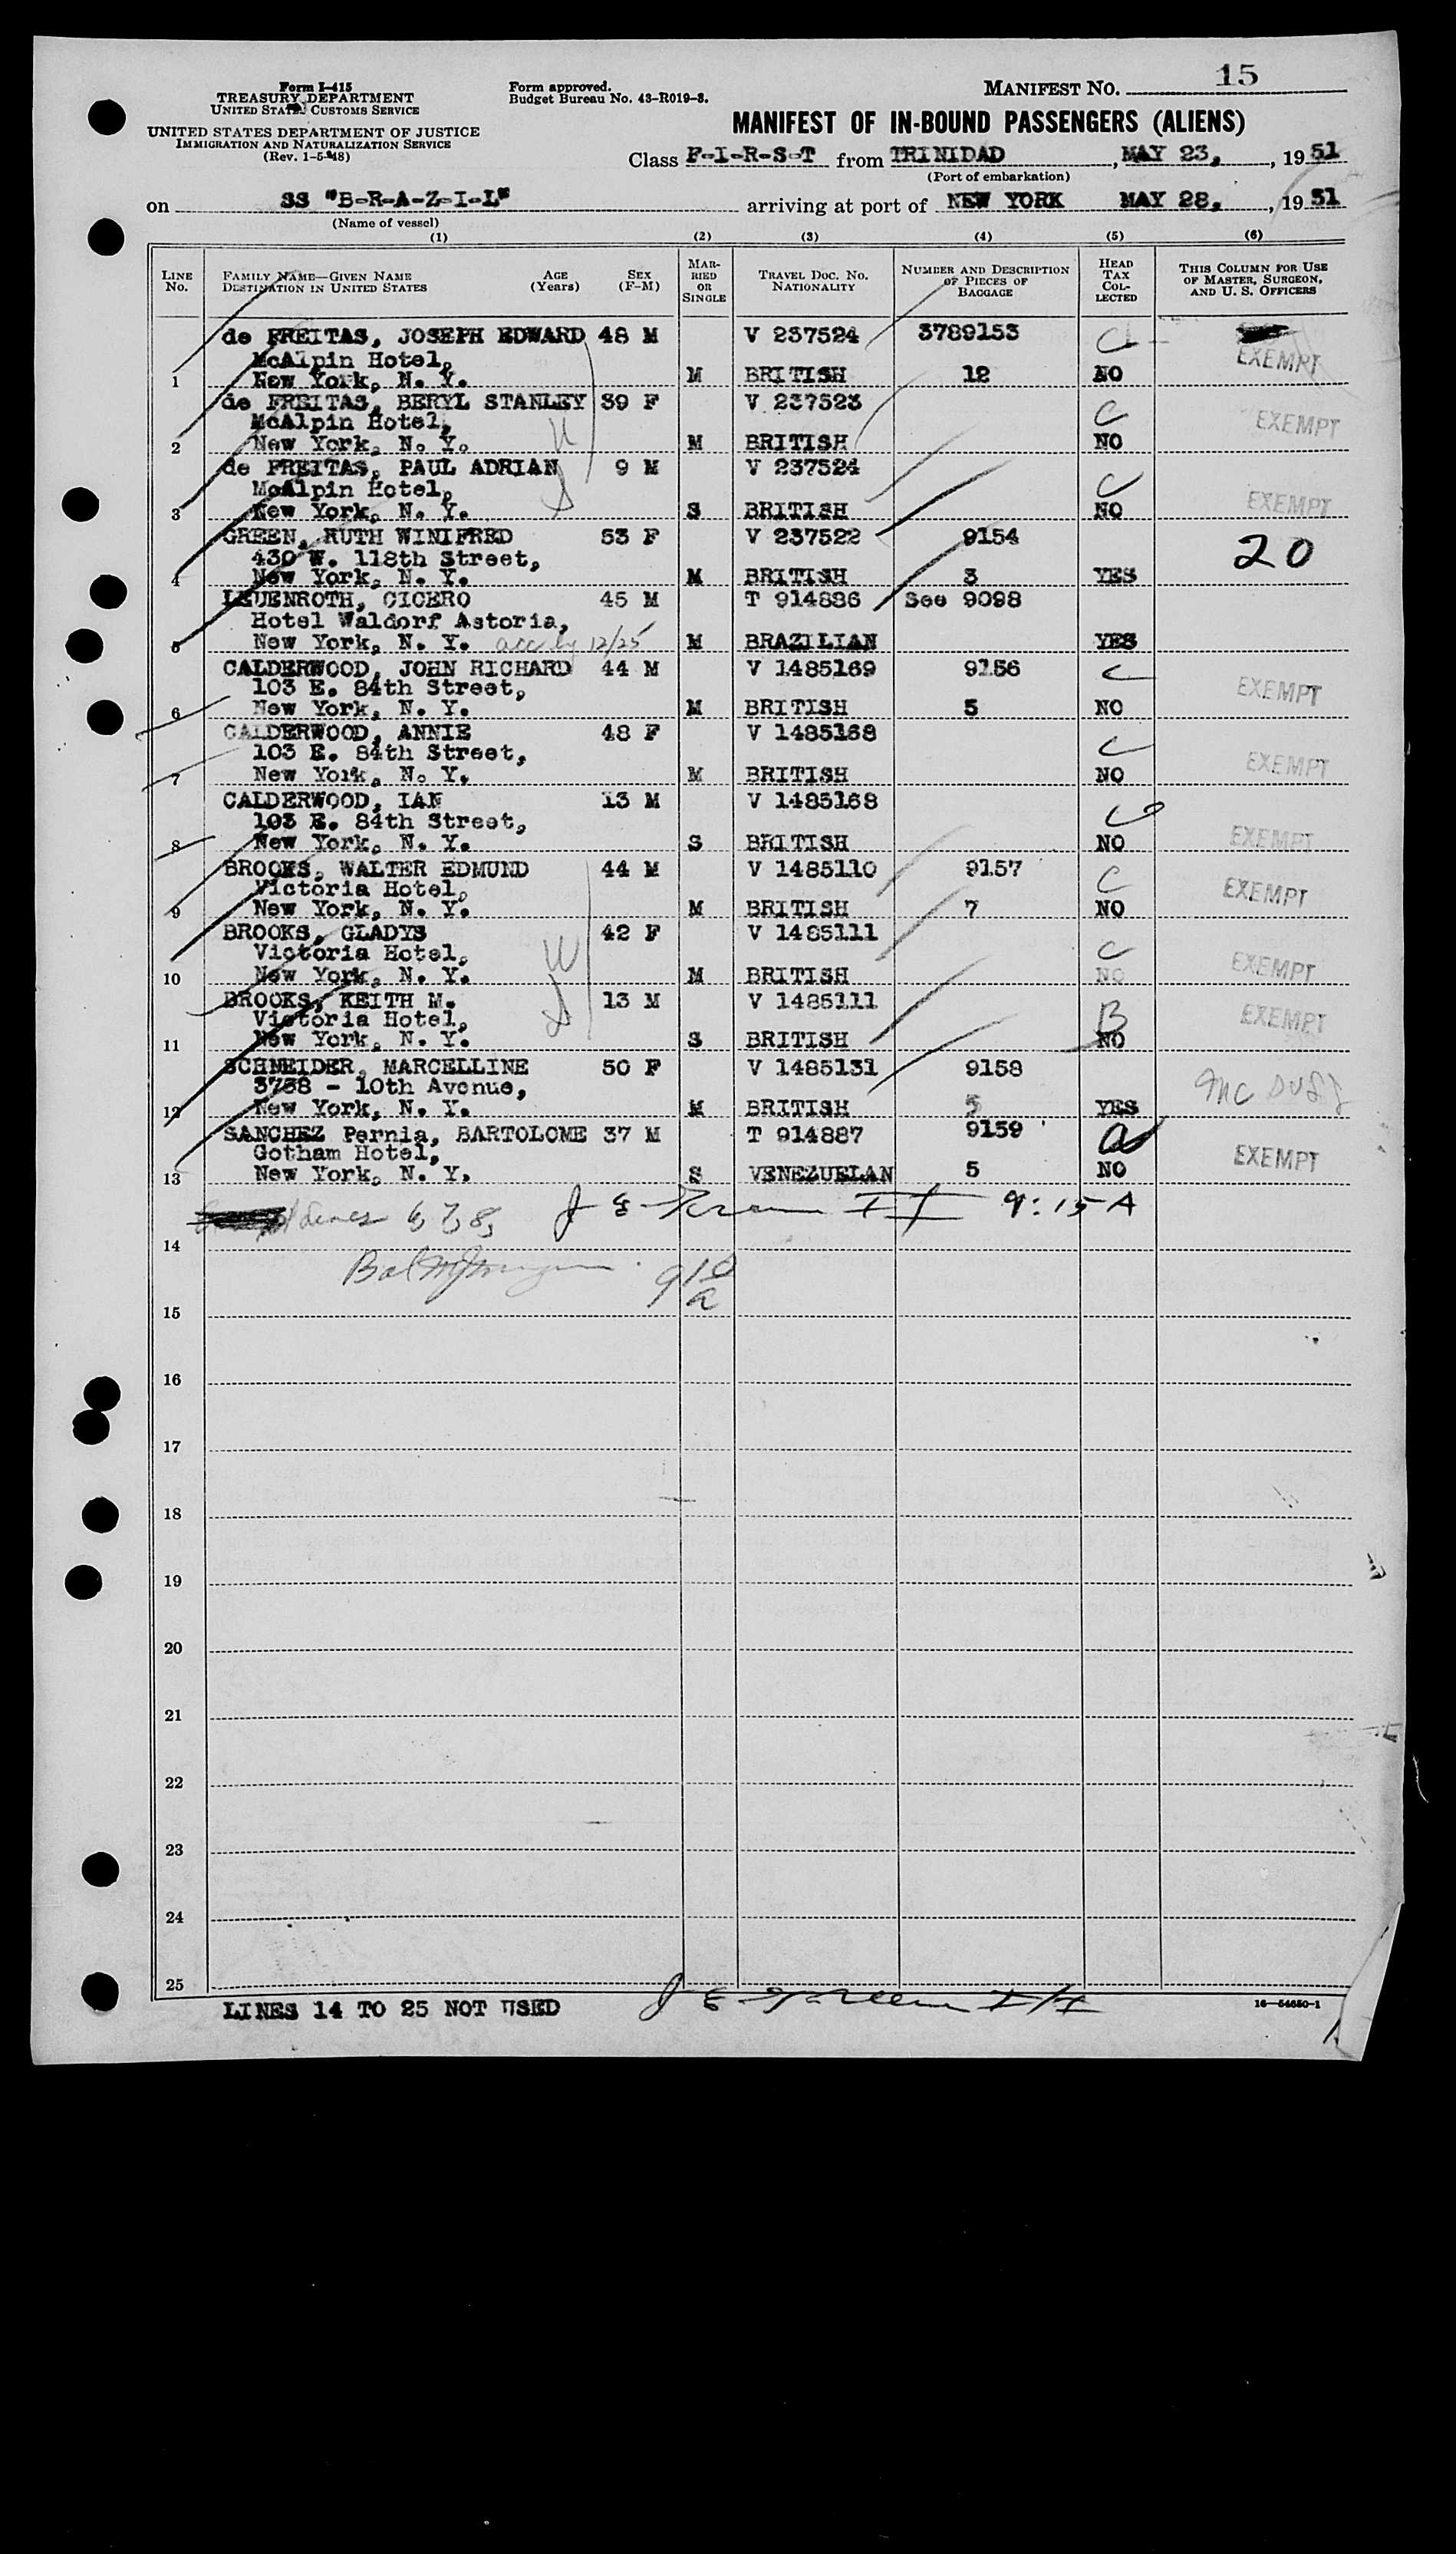 Form I-415
TREASURY DEPARTMENT
UNITED STATES CUSTOMS SERVICE
UNITED STATES DEPARTMENT OF JUSTICE
IMMIGRATION AND NATURALIZATION SERVICE
(Rev. 1-5-48)
Form approved.
Budget Bureau No. 43-R019-3.
MANIFEST No. 15
MANIFEST OF IN-BOUND PASSENGERS (ALIENS)
Class F-I-R-S-T from TRINIDAD, MAY 23, 1951
(Port of embarkation)
on SS "B-R-A-Z-I-L" arriving at port of NEW YORK MAY 28, 1951
(Name of vessel)
(1) (2) (3) (4) (5) (6)
LINE No. FAMILY NAME—GIVEN NAME DESTINATION IN UNITED STATES AGE (Years) SEX (F-M) MARRIED OR SINGLE TRAVEL DOC. NO. NATIONALITY NUMBER AND DESCRIPTION OF PIECES OF BAGGAGE HEAD TAX COLLECTED THIS COLUMN FOR USE OF MASTER, SURGEON, AND U. S. OFFICERS
de FREITAS, JOSEPH EDWARD 48 M V 237524 3789153 C
McAlpin Hotel, EXEMPT
1 New York, N. Y. M BRITISH 12 NO
de FREITAS, BERYL STANLEY 39 F V 237523 C
McAlpin Hotel, EXEMPT
2 New York, N. Y. M BRITISH NO
de FREITAS, PAUL ADRIAN 9 M V 237524
McAlpin Hotel, C EXEMPT
3 New York, N. Y. S BRITISH NO
GREEN, RUTH WINIFRED 53 F V 237522 9154
430 W. 118th Street, 20
4 New York, N. Y. M BRITISH 3 YES
LEUENROTH, CICERO 45 M T 914886 See 9098
Hotel Waldorf Astoria,
5 New York, N. Y. acc by 12/25 M BRAZILIAN YES
CALDERWOOD, JOHN RICHARD 44 M V 1485169 9156 C
103 E. 84th Street, EXEMPT
6 New York, N. Y. M BRITISH 5 NO
CALDERWOOD, ANNIE 48 F V 1485168
103 E. 84th Street, C EXEMPT
7 New York, N. Y. M BRITISH NO
CALDERWOOD, IAN 13 M V 1485168
103 E. 84th Street, C EXEMPT
8 New York, N. Y. S BRITISH NO
BROOKS, WALTER EDMUND 44 M V 1485110 9157 C
Victoria Hotel, EXEMPT
9 New York, N. Y. M BRITISH 7 NO
BROOKS, GLADYS 42 F V 1485111
Victoria Hotel, C EXEMPT
10 New York, N. Y. M BRITISH NO
BROOKS, KEITH M. 13 M V 1485111
Victoria Hotel, B EXEMPT
11 New York, N. Y. S BRITISH NO
SCHNEIDER, MARCELLINE 50 F V 1485131 9158
3758 - 10th Avenue,
12 New York, N. Y. M BRITISH 5 YES
SANCHEZ Pernia, BARTOLOME 37 M T 914887 9159 a
Gotham Hotel, EXEMPT
13 New York, N. Y. S VENEZUELAN 5 NO
lines 6, 7, 8, 9:15 A
14
910 a
15
16
17
18
19
20
21
22
23
24
25
LINES 14 TO 25 NOT USED
16—54650-1